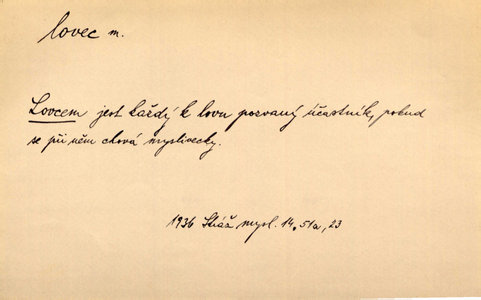 lovec m.
Lovcem jest každý k lovu pozvaný účastník, pokud
se při něm chová myslivecky.
1936 Stráž mysl. 14, 51a, 23